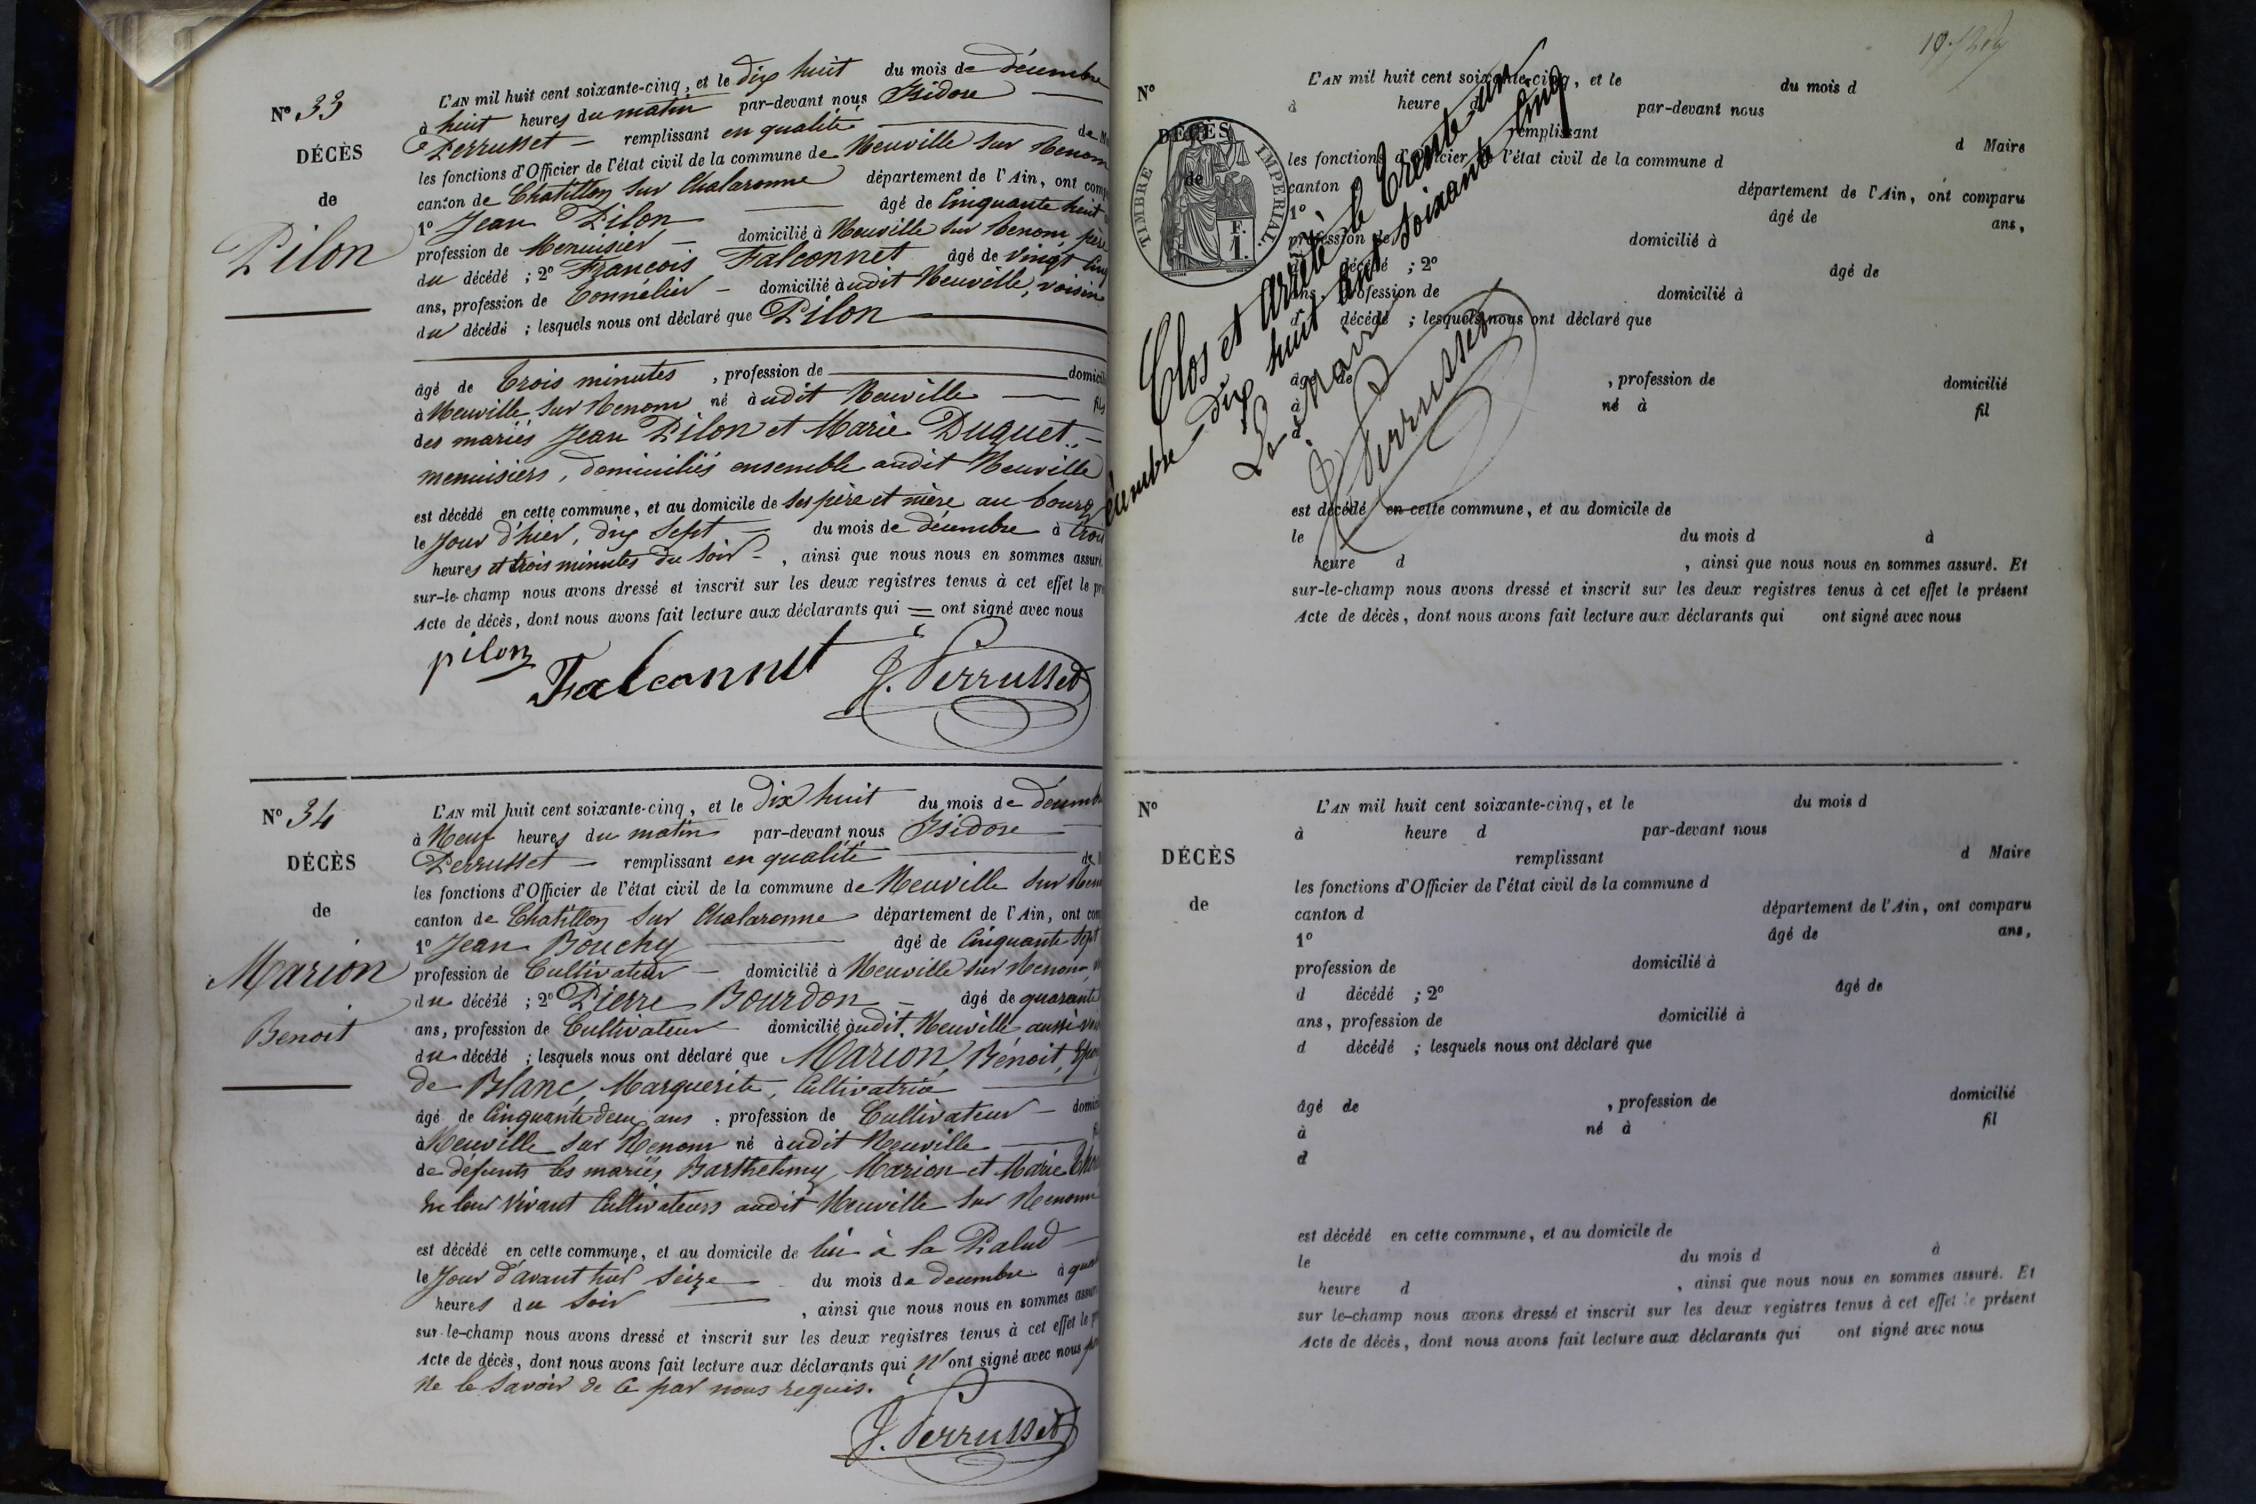 Nº 33
DÉCÈS
de
Pilon
L'AN mil huit cent soixante-cinq, et le dix huit du mois de décembre
à huit heures du matin par-devant nous Isidore
Perrusset remplissant en qualité de
les fonctions d'Officier de l'état civil de la commune de Neuville sur Renom
canton de Chatillon sur Chalaronne département de l'Ain, ont
1º Jean Pilon âgé de Cinquante huit
profession de Menuisier domicilié à Neuville sur Renom, père
du décédé ; 2º Francois Falconnet âgé de vingt cinq
ans, profession de Tonnélier domicilié audit Neuville, voisin
du décédé ; lesquels nous ont déclaré que Pilon
âgé de Trois minutes , profession de
à Neuville sur Renom né audit Neuville fils
des mariés Jean Pilon et Marie Duquet,
menuisiers, domiciliés ensemble audit Neuville
est décédé en cette commune, et au domicile de ses père et mère au bourg
le Jour d'hier, dix sept du mois de décembre à trois
heures et trois minutes du soir , ainsi que nous nous en sommes assuré.
sur-le-champ nous avons dressé et inscrit sur les deux registres tenus à cet effet le
Acte de décès, dont nous avons fait lecture aux déclarants qui ont signé avec nous
pilon
Falconnet
J. Perrusset
Nº 34
DÉCÈS
de
Marion
Benoit
L'AN mil huit cent soixante-cinq, et le Dix huit du mois de
à Neuf heures du matin par-devant nous Isidore
Perrusset remplissant en qualité de
les fonctions d'Officier de l'état civil de la commune de Neuville sur
canton de Chatillon sur Chalaronne département de l'Ain, ont
1º Jean Bouchy âgé de Cinquante sept
profession de Cultivateur domicilié à Neuville sur Renom,
du décédé ; 2º Pierre Bourdon âgé de quarante
ans, profession de Cultivateur domicilié audit Neuville aussi
du décédé ; lesquels nous ont déclaré que Marion, Bénoit,
de Blanc, Marguerite, Cultivatrice
âgé de Cinquante deux ans , profession de Cultivateur
à Neuville sur Renom né audit Neuville
de défunts les mariés Barthelemy Marion et Marie
En leur vivant Cultivateurs audit Neuville sur Renom
est décédé en cette commune, et au domicile de lui à la Palud
le Jour d'avant hier seize du mois de decembre à
heures du soir , ainsi que nous nous en sommes
sur-le-champ nous avons dressé et inscrit sur les deux registres tenus à cet effet le
Acte de décès, dont nous avons fait lecture aux déclarants qui n'ont signé avec nous pour
ne le savoir de ce par nous requis.
J. Perrusset
Nº
DÉCÈS
de
TIMBRE IMPERIAL.
F.
1.
L'AN mil huit cent soixante-cinq, et le du mois d
à heure par-devant nous
remplissant d Maire
les fonctions d'Officier de l'état civil de la commune d
canton département de l'Ain, ont comparu
1º âgé de ans,
profession de domicilié à
d décédé ; 2º âgé de
ans, profession de domicilié à
d décédé ; lesquels nous ont déclaré que
âgé de , profession de domicilié
à né à fil
d
est décédé en cette commune, et au domicile de
le du mois d à
heure d , ainsi que nous nous en sommes assuré. Et
sur-le-champ nous avons dressé et inscrit sur les deux registres tenus à cet effet le présent
Acte de décès, dont nous avons fait lecture aux déclarants qui ont signé avec nous
Clos et arrêté le Trente un
décembre dix huit cent soixante cinq
Le Maire
J. Perrusset
Nº
DÉCÈS
de
L'AN mil huit cent soixante-cinq, et le du mois d
à heure d par-devant nous
remplissant d Maire
les fonctions d'Officier de l'état civil de la commune d
canton d département de l'Ain, ont comparu
1º âgé de ans,
profession de domicilié à
d décédé ; 2º âgé de
ans, profession de domicilié à
d décédé ; lesquels nous ont déclaré que
âgé de , profession de domicilié
à né à fil
d
est décédé en cette commune, et au domicile de
le du mois d à
heure d , ainsi que nous nous en sommes assuré. Et
sur le-champ nous avons dressé et inscrit sur les deux registres tenus à cet effet le présent
Acte de décès, dont nous avons fait lecture aux déclarants qui ont signé avec nous